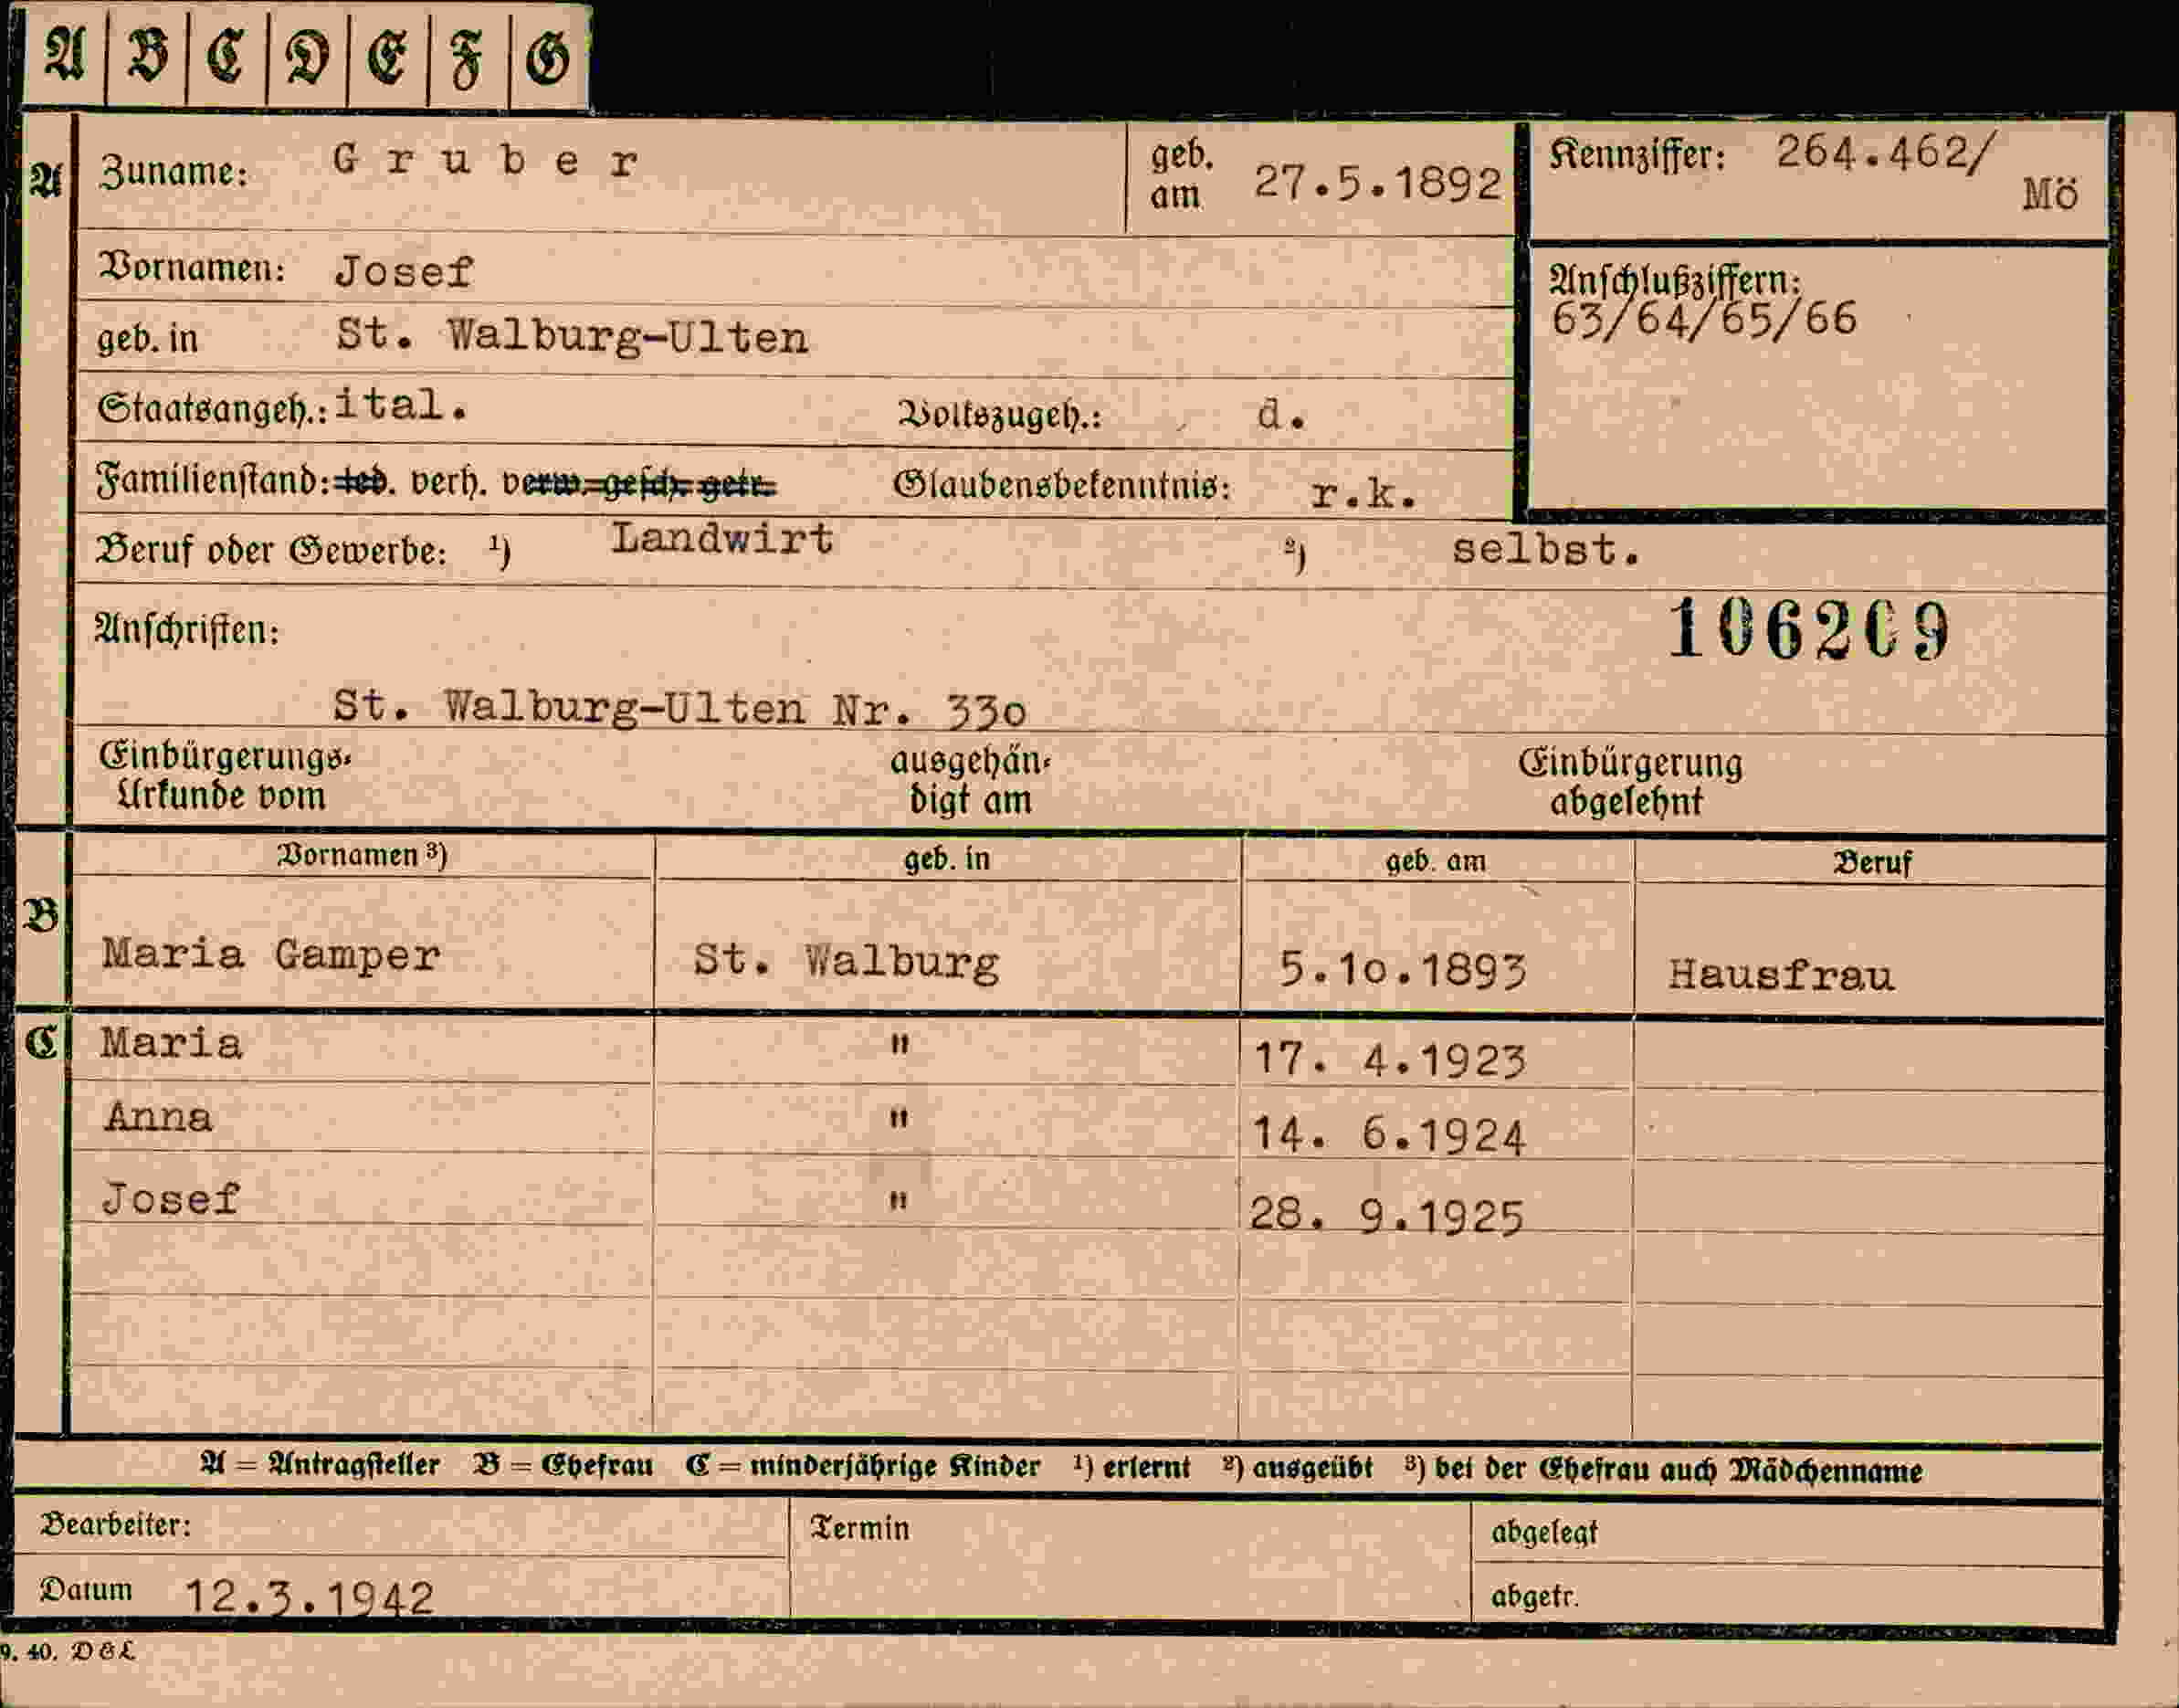 A B C D E F G
A Zuname: Gruber geb. am 27.5.1892 Kennziffer: 264.462/ Mö
Vornamen: Josef
Anschlußziffern: 63/64/65/66
geb. in St. Walburg-Ulten
Staatsangeh.: ital. Volkszugeh.: d.
Familienstand: led. verh. verw. gesch. getr. Glaubensbekenntnis: r.k.
Beruf oder Gewerbe: ¹) Landwirt ²) selbst.
Anschriften: 106209
St. Walburg-Ulten Nr. 330
Einbürgerungs- ausgehän- Einbürgerung
Urkunde vom digt am abgelehnt
Vornamen ³) geb. in geb. am Beruf
B Maria Gamper St. Walburg 5.10.1893 Hausfrau
C Maria " 17. 4.1923
Anna " 14. 6.1924
Josef " 28. 9.1925
A = Antragsteller B = Ehefrau C = minderjährige Kinder ¹) erlernt ²) ausgeübt ³) bei der Ehefrau auch Mädchenname
Bearbeiter: Termin abgelegt
Datum 12.3.1942 abgetr.
9. 40. D&L